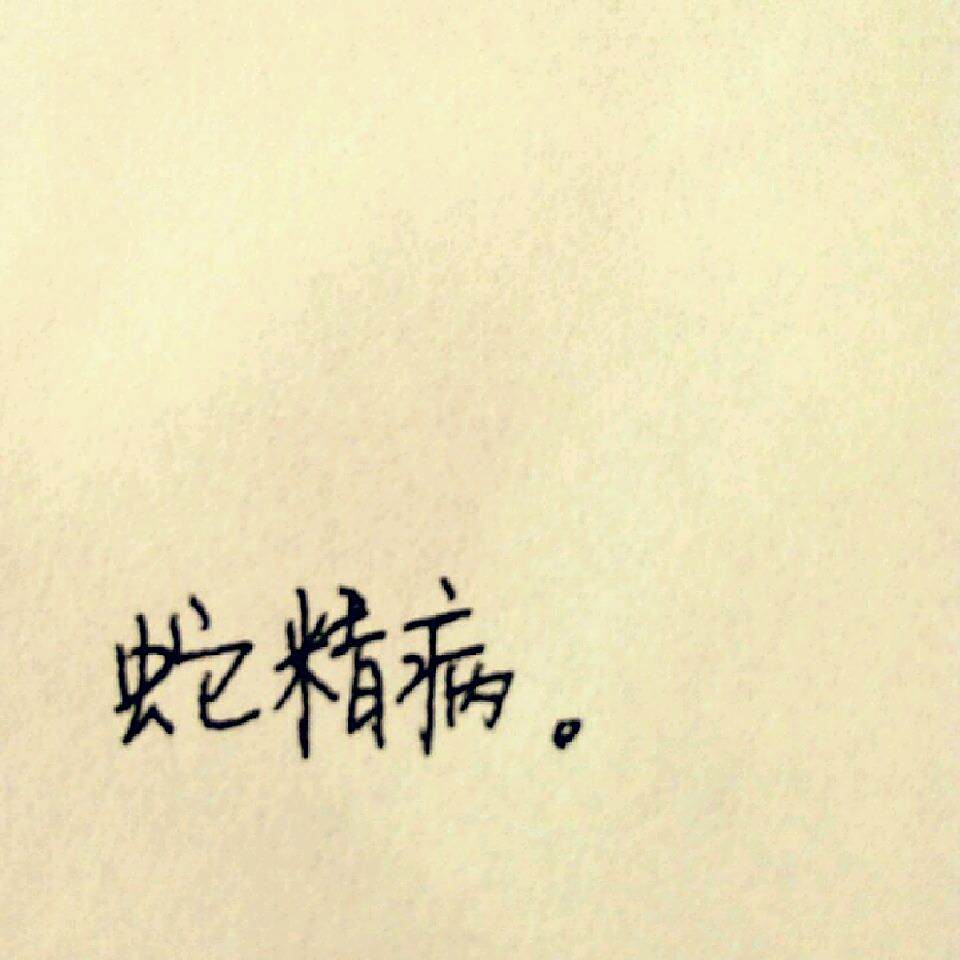 蛇精病。